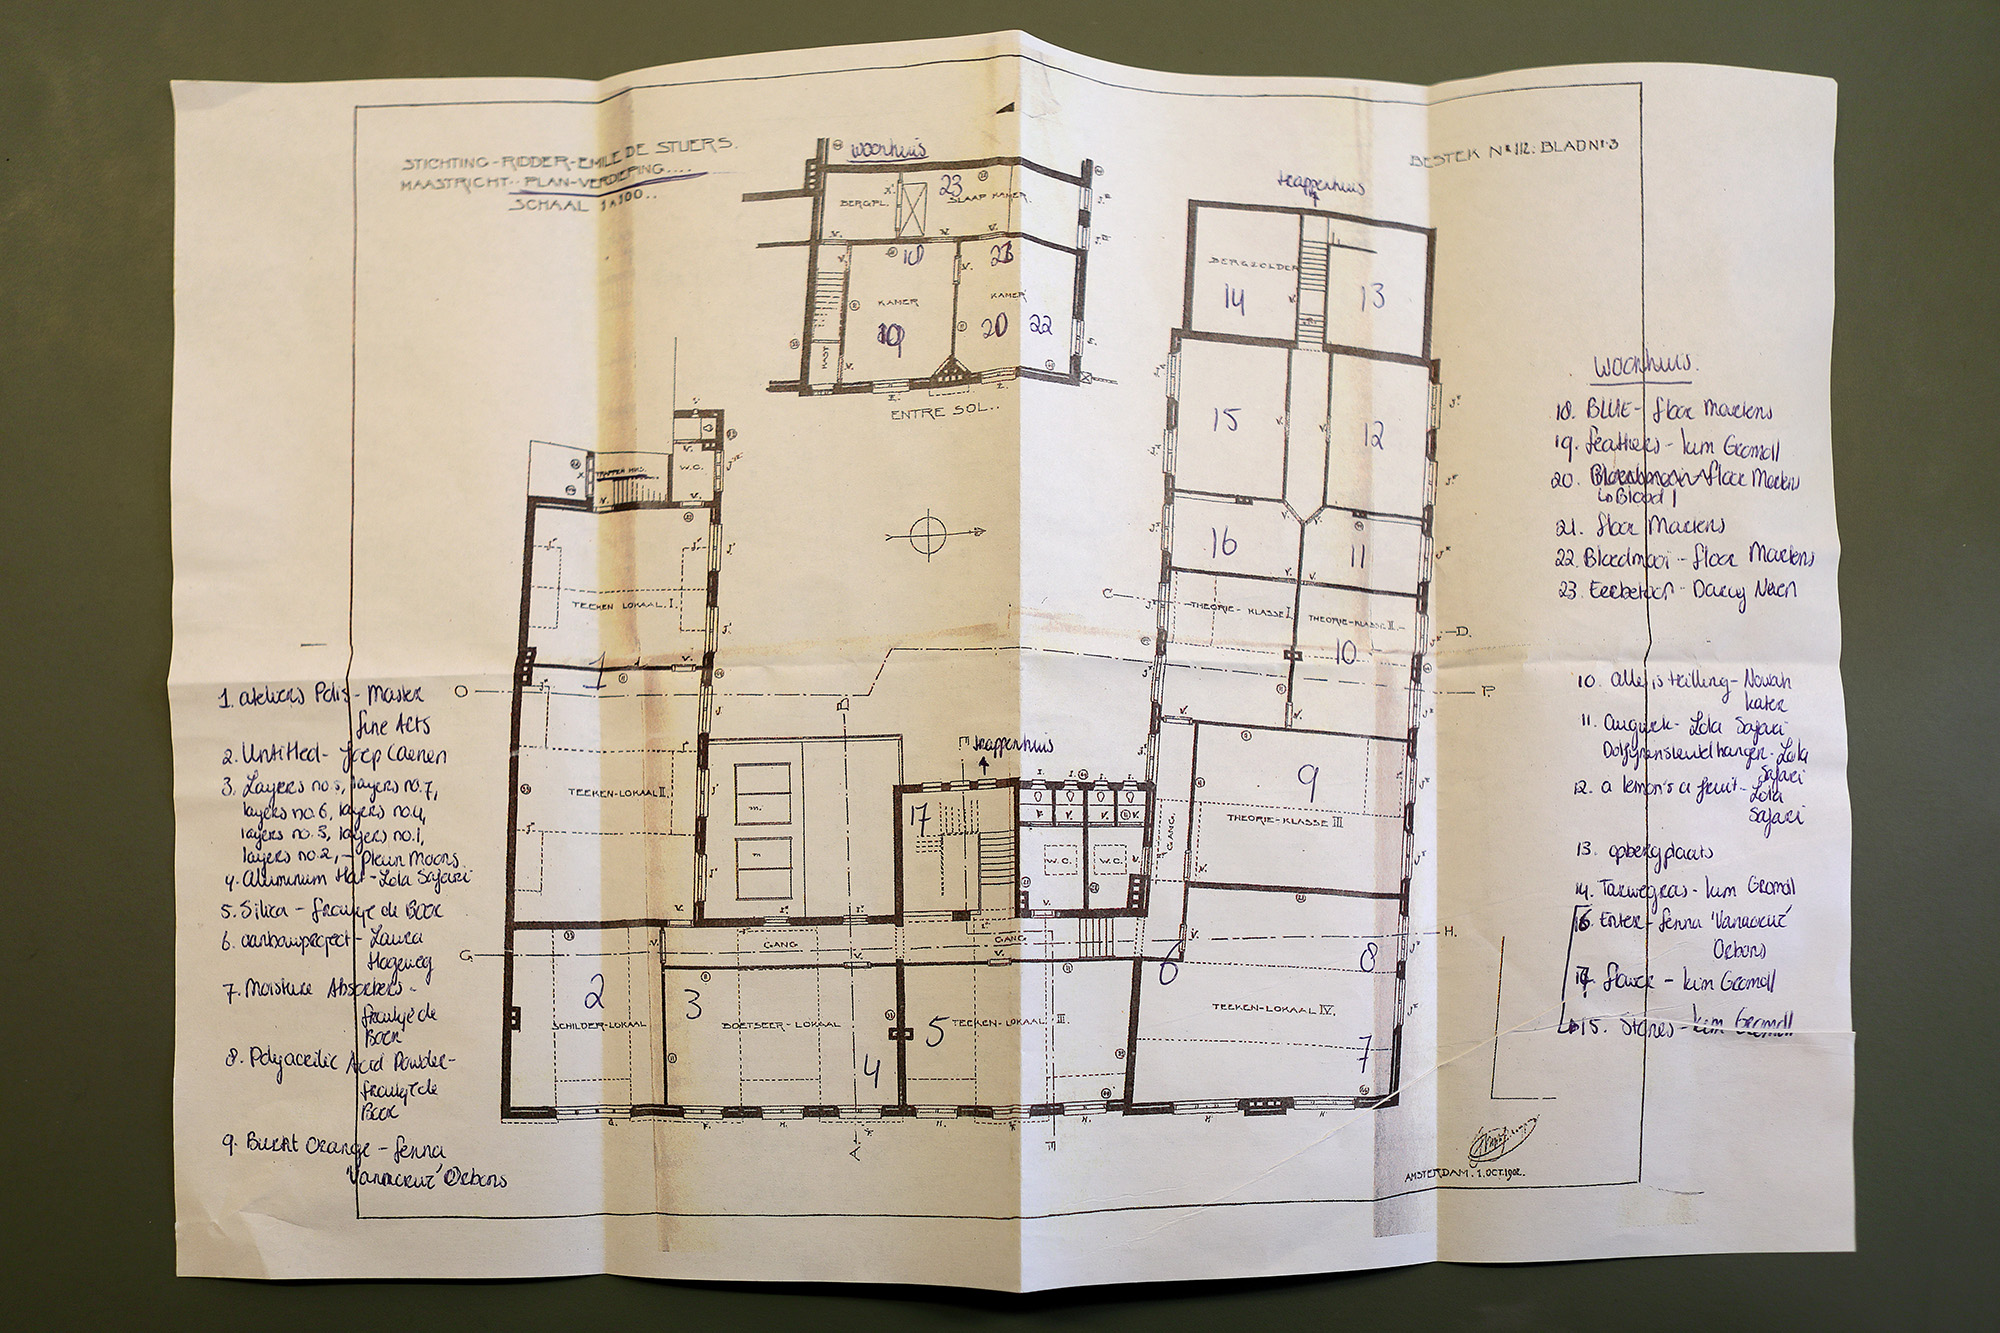 STICHTING-RIDDER-EMILE DE STUERS.
MAASTRICHT.. PLAN-VERDIEPING....
SCHAAL 1 A 100..
BESTEK No 112. BLAD No. 3
woonhuis
BERGPL.
23
SLAAP KAMER.
18
KAMER
19
KAMER
20
22
KAST
ENTRE SOL..
trappenhuis
BERGZOLDER
14
13
15
12
16
11
THEORIE-KLASSE I.
THEORIE-KLASSE II.
10
C
D.
W.C.
TEEKEN LOKAAL. I.
1
O
P.
TEEKEN-LOKAAL II.
trappenhuis
17
W.C.
W.C.
GANG.
9
THEORIE-KLASSE III
G
GANG
GANG
H.
2
SCHILDER-LOKAAL
3
BOETSEER-LOKAAL
4
5
TEEKEN-LOKAAL III.
6
8
TEEKEN-LOKAAL IV.
7
AMSTERDAM. 1. OCT. 1902.
1. ateliers Polis - Master
fine Arts
2. Untitled - Joep Caenen
3. Layers no. 5, layers no. 7,
layers no. 6, layers no. 4,
layers no. 3, layers no. 1,
layers no. 2, - Pleun Moons
4. Aluminum Hat - Lola Safari
5. Silica - froukje de Boer
6. aanbouwproject - Laura
Hageweg
7. Moisture Absorbers -
froukje de
Boer
8. Polyacrilic Acid Powder -
froukje de
Boer
9. Burnt Orange - fenna
'Vanacruz' Oerbons
woonhuis.
18. BLUE - floor Martens
19. feathers - kim Gromoll
20. floor Martens
↳ Bloed 1
21. floor Martens
22. Bloedmooi - floor Martens
23. Eerbetoon - Darcy Neven
10. alle is trilling - Nowah
kater
11. Lola Safari
Dolfijnensleutelhanger - Lola
Safari
12. a lemon's a fruit - Lola
Safari
13. opbergplaats
14. Tarwegras - kim Gromoll
16. Enter - fenna 'Vanacruz'
Oerbons
17. flower - kim Gromoll
↳ 15. Stones - kim Gromoll